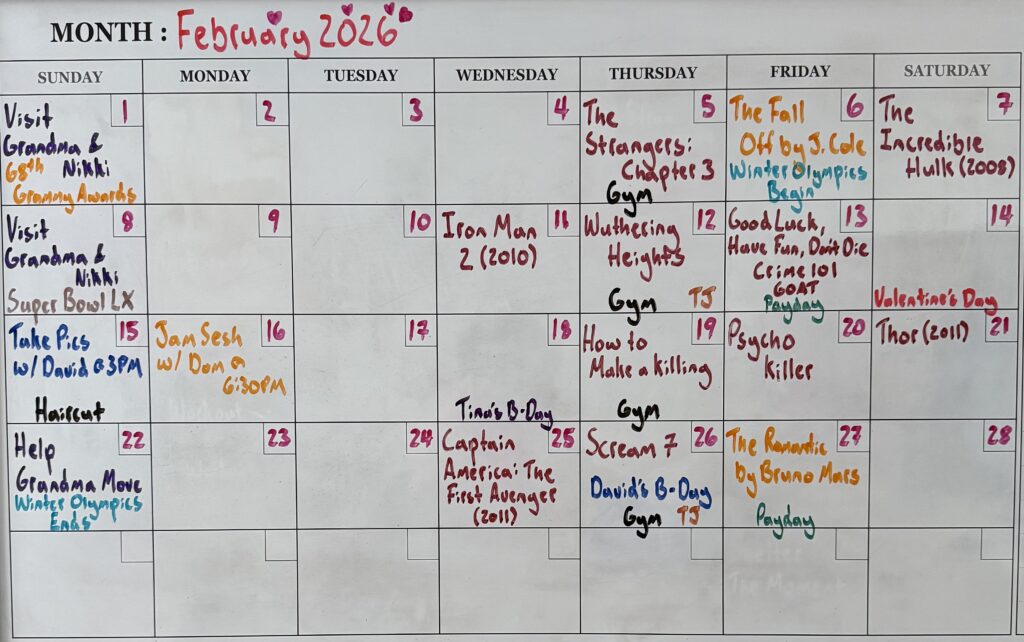 MONTH : February 2026
SUNDAY MONDAY TUESDAY WEDNESDAY THURSDAY FRIDAY SATURDAY
1
Visit
Grandma &
68th Nikki
Grammy Awards
2
3
4
5
The
Strangers:
Chapter 3
Gym
6
The Fall
Off by J. Cole
Winter Olympics
Begin
7
The
Incredible
Hulk (2008)
8
Visit
Grandma &
Nikki
Super Bowl LX
9
10
11
Iron Man
2 (2010)
12
Wuthering
Heights
Gym TJ
13
Good Luck,
Have Fun, Don't Die
Crime 101
GOAT
Payday
14
Valentine's Day
15
Take Pics
w/ David @ 3PM
Haircut
16
Jam Sesh
w/ Dom @
6:30PM
17
18
Tina's B-Day
19
How to
Make a Killing
Gym
20
Psycho
Killer
21
Thor (2011)
22
Help
Grandma Move
Winter Olympics
Ends
23
24
25
Captain
America: The
First Avenger
(2011)
26
Scream 7
David's B-Day
Gym TJ
27
The Romantic
by Bruno Mars
Payday
28